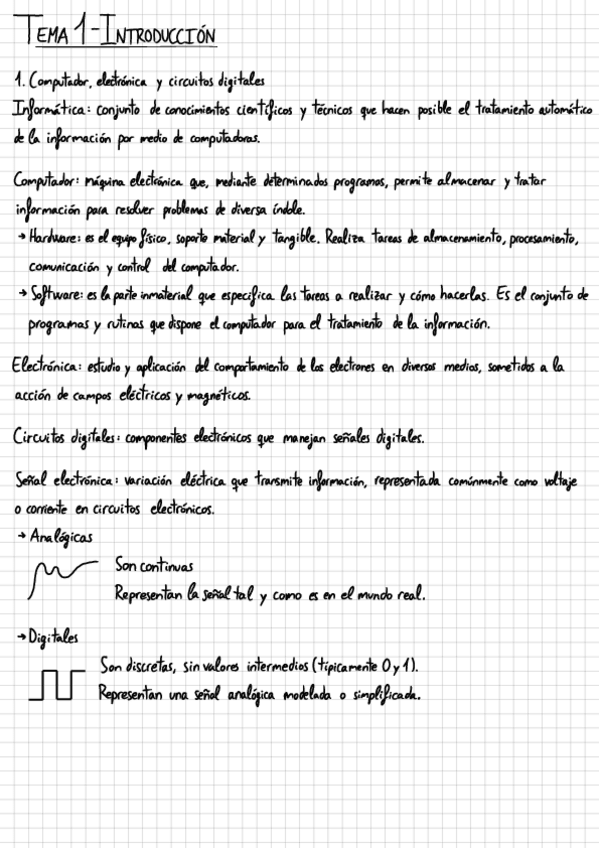 TEMA 1-INTRODUCCIÓN
1. Computador, electrónica y circuitos digitales
Informática: conjunto de conocimientos científicos y técnicos que hacen posible el tratamiento automático
de la información por medio de computadoras.
Computador: máquina electrónica que, mediante determinados programas, permite almacenar y tratar
información para resolver problemas de diversa índole.
→ Hardware: es el equipo físico, soporte material y tangible. Realiza tareas de almacenamiento, procesamiento,
comunicación y control del computador.
→ Software: es la parte inmaterial que especifica las tareas a realizar y cómo hacerlas. Es el conjunto de
programas y rutinas que dispone el computador para el tratamiento de la información.
Electrónica: estudio y aplicación del comportamiento de los electrones en diversos medios, sometidos a la
acción de campos eléctricos y magnéticos.
Circuitos digitales: componentes electrónicos que manejan señales digitales.
Señal electrónica: variación eléctrica que transmite información, representada comúnmente como voltaje
o corriente en circuitos electrónicos.
→ Analógicas
Son continuas
Representan la señal tal y como es en el mundo real.
→ Digitales
Son discretas, sin valores intermedios (típicamente 0 y 1).
Representan una señal analógica modelada o simplificada.